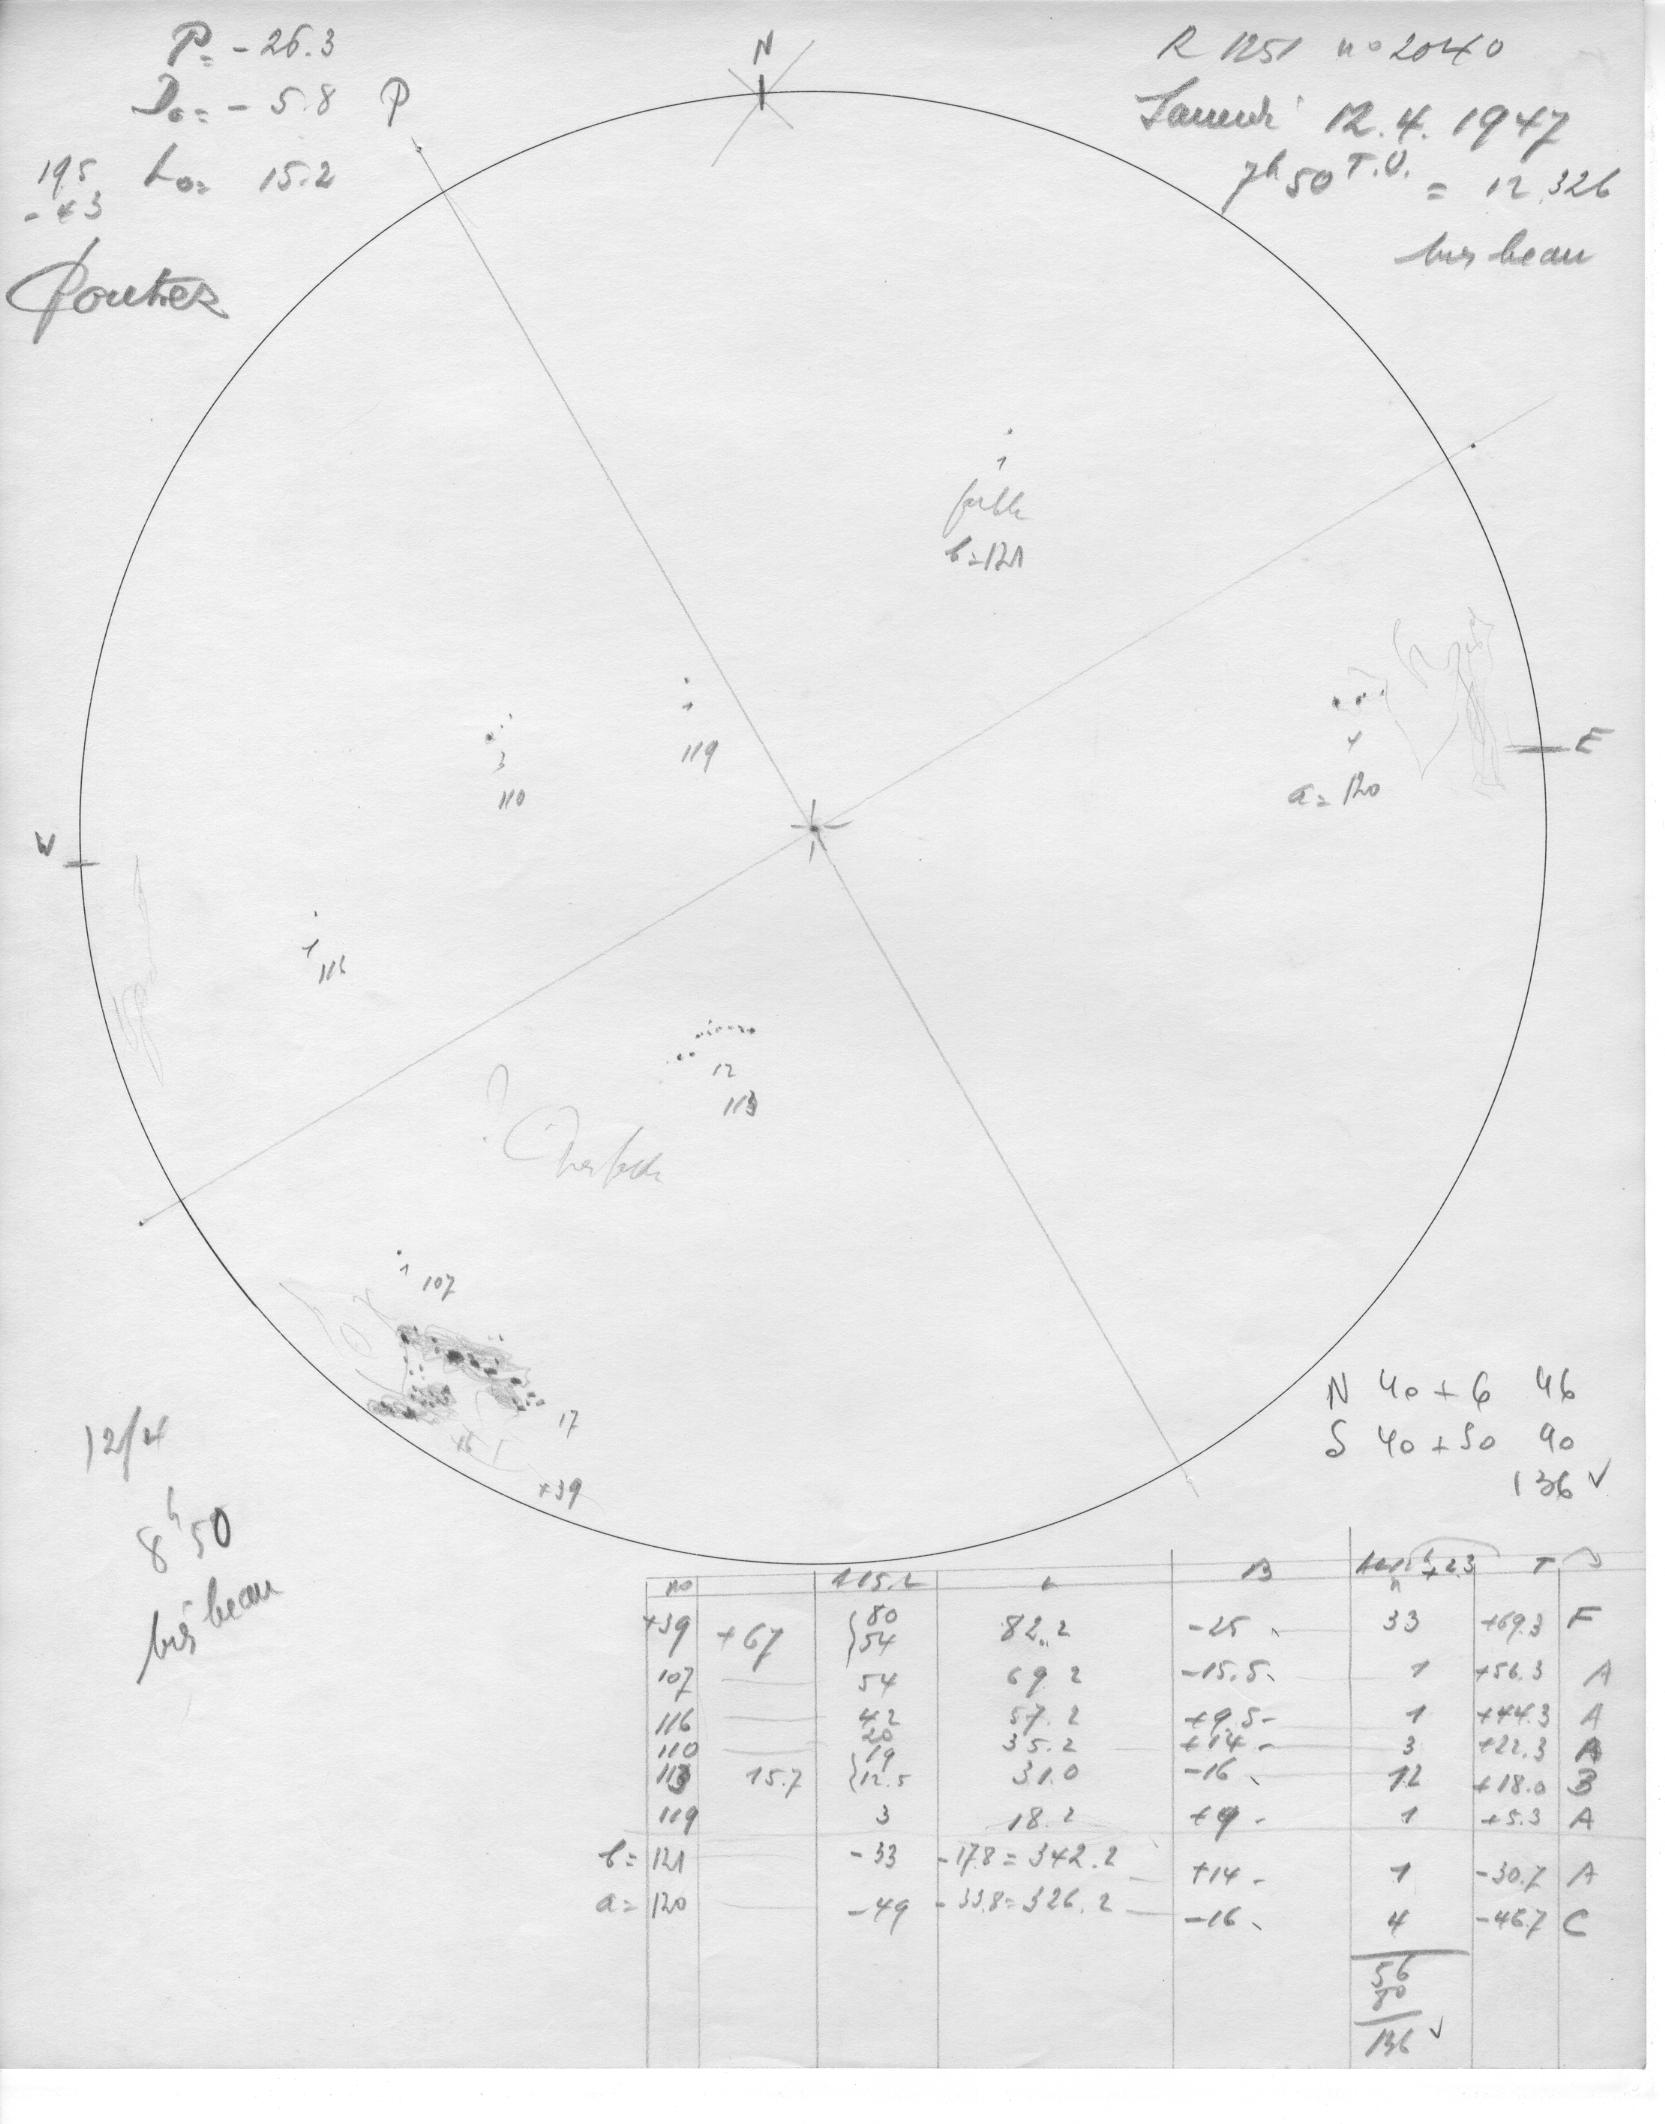 P= -26.3
D₀= - 5.8
P
195
- 43
L₀= 15.2
N
R 1251 n° 2040
Samedi 12.4.1947
7h 50 T.U. = 12.326
très beau
1
faible
b=121
1
119
3
110
4
a=120
E
W
1
116
12
113
?
Très faible
1
107
17
16
+39
12/4
8h 50
très beau
N 40+6 46
S 40+50 90
136 ✓
no +15.2 L B T
+39 +67 {80 54 82.2 -25 33 +69.3 F
107 54 69.2 -15.5 1 +56.3 A
116 42 57.2 +9.5 1 +44.3 A
110 20 35.2 +14 3 +22.3 A
113 15.7 {19 12.5 31.0 -16 12 +18.0 B
119 3 18.2 +9 1 +5.3 A
b=121 -33 -17.8=342.2 +14 1 -30.7 A
a=120 -49 -33.8=326.2 -16 4 -46.7 C
56
80
136 ✓